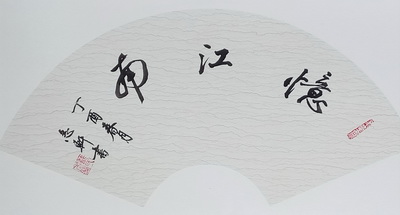 憶江南
丁酉春月
書